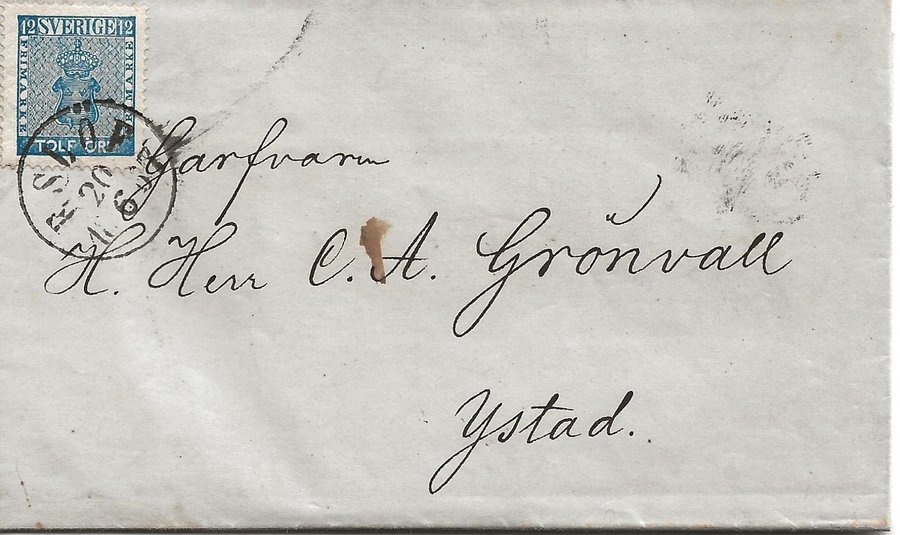 12 SVERIGE 12
FRIMARKE
FRIMARKE
TOLF ÖRE
20
Garfvaren
H. Herr C. A. Grönvall
Ystad.